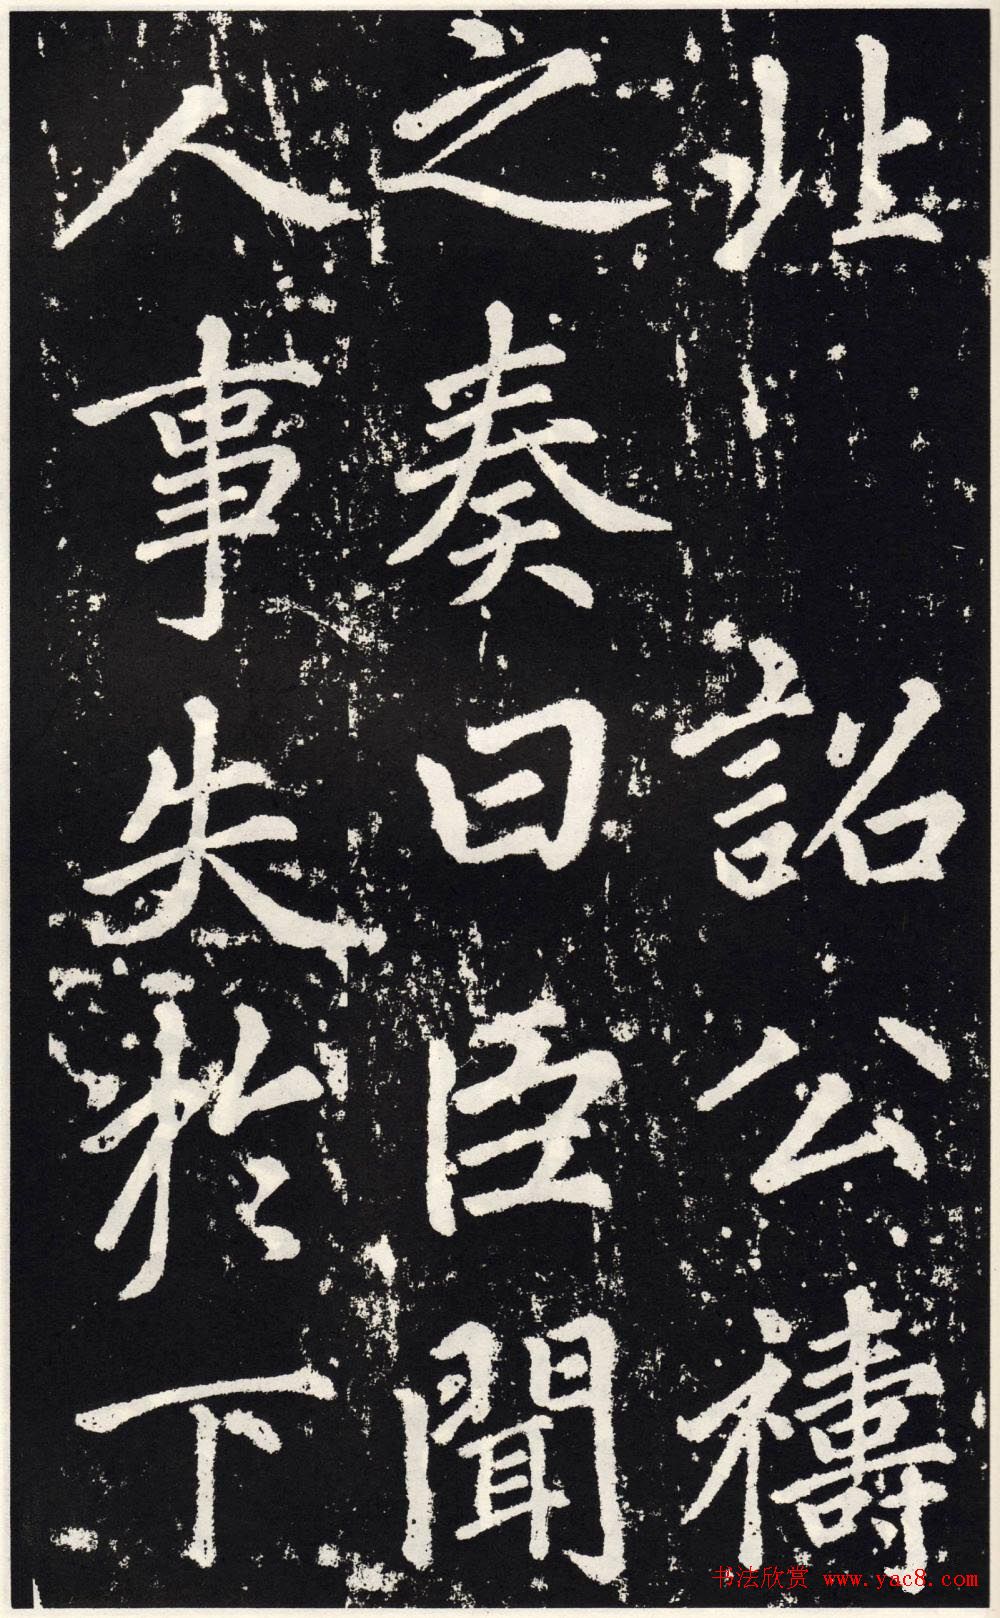 北 詔公禱
之奏曰臣聞
人事失於下
书法欣赏 www.yac8.com